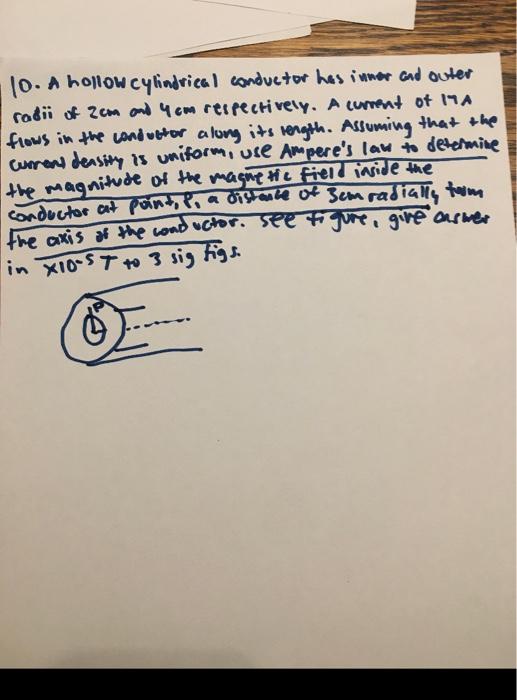 10. A hollow cylindrical conductor has inner and outer
radii of 2cm and 4cm respectively. A current of 17A
flows in the conductor along its length. Assuming that the
current density is uniform, use Ampere's law to determine
the magnitude of the magnetic field inside the
conductor at point, P, a distance of 3cm radially from
the axis of the conductor. see figure, give answer
in x10-5 T to 3 sig figs.
P